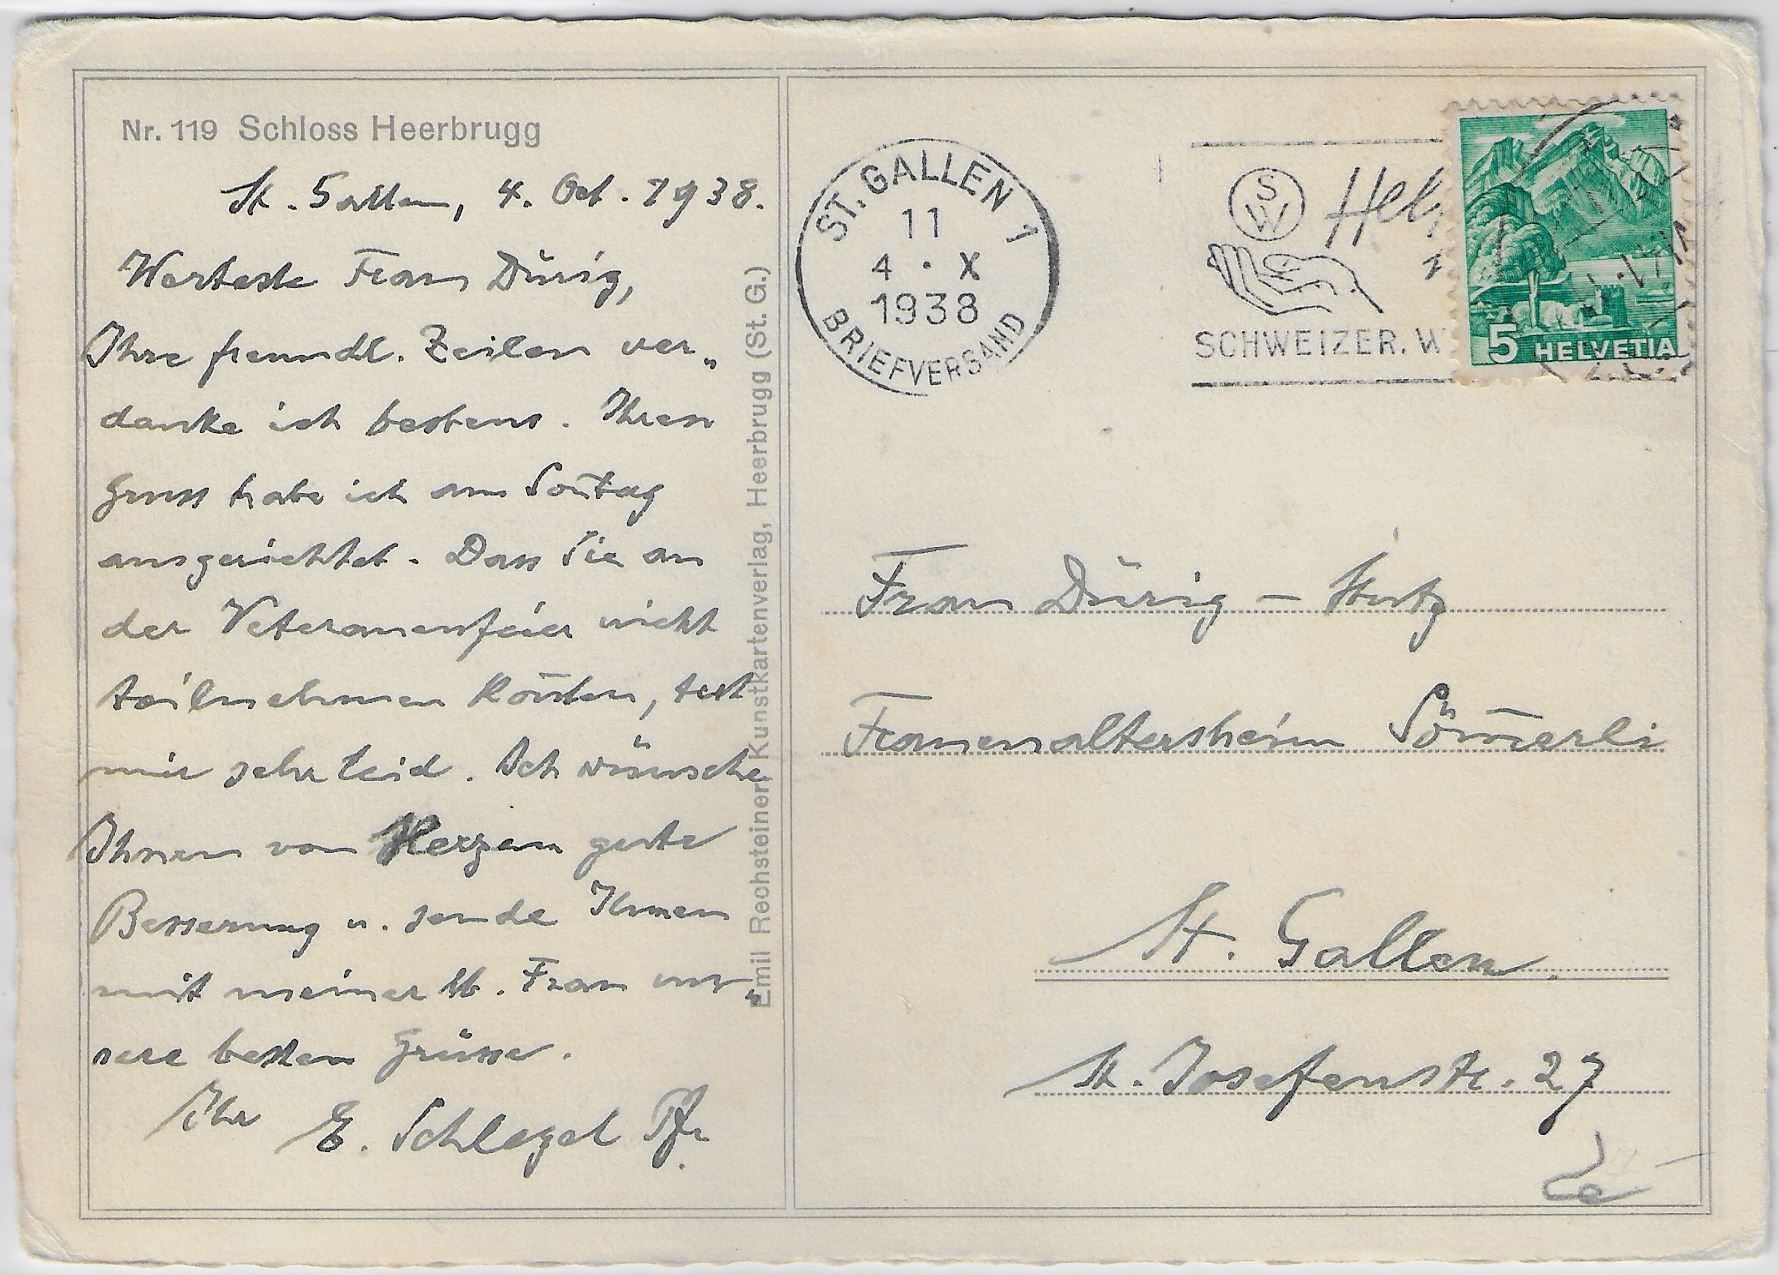 Nr. 119 Schloss Heerbrugg
St. Gallen, 4. Oct. 1938.
Werteste Frau Dürig,
Ihre freundl. Zeilen ver„
danke ich bestens. Ihren
Gruss habe ich am Soñtag
ausgerichtet. Dass Sie an
der Veteranenfeier nicht
teilnehmen koñten, tut
mir sehr leid. Ich wünsche
Ihnen von Herzen gute
Besserung u. sende Ihnen
mit meiner lb. Frau un„
sere besten Grüsse.
Ihr E. Schlegel Pfr.
Emil Rechsteiner, Kunstkartenverlag, Heerbrugg (St. G.)
ST. GALLEN 1
11
4 · X
1938
BRIEFVERSAND
SW
SCHWEIZER. W
5 HELVETIA
Frau Dürig –
Frauenaltersheim Söm̄erli
St. Gallen.
St. Josefenstr. 27